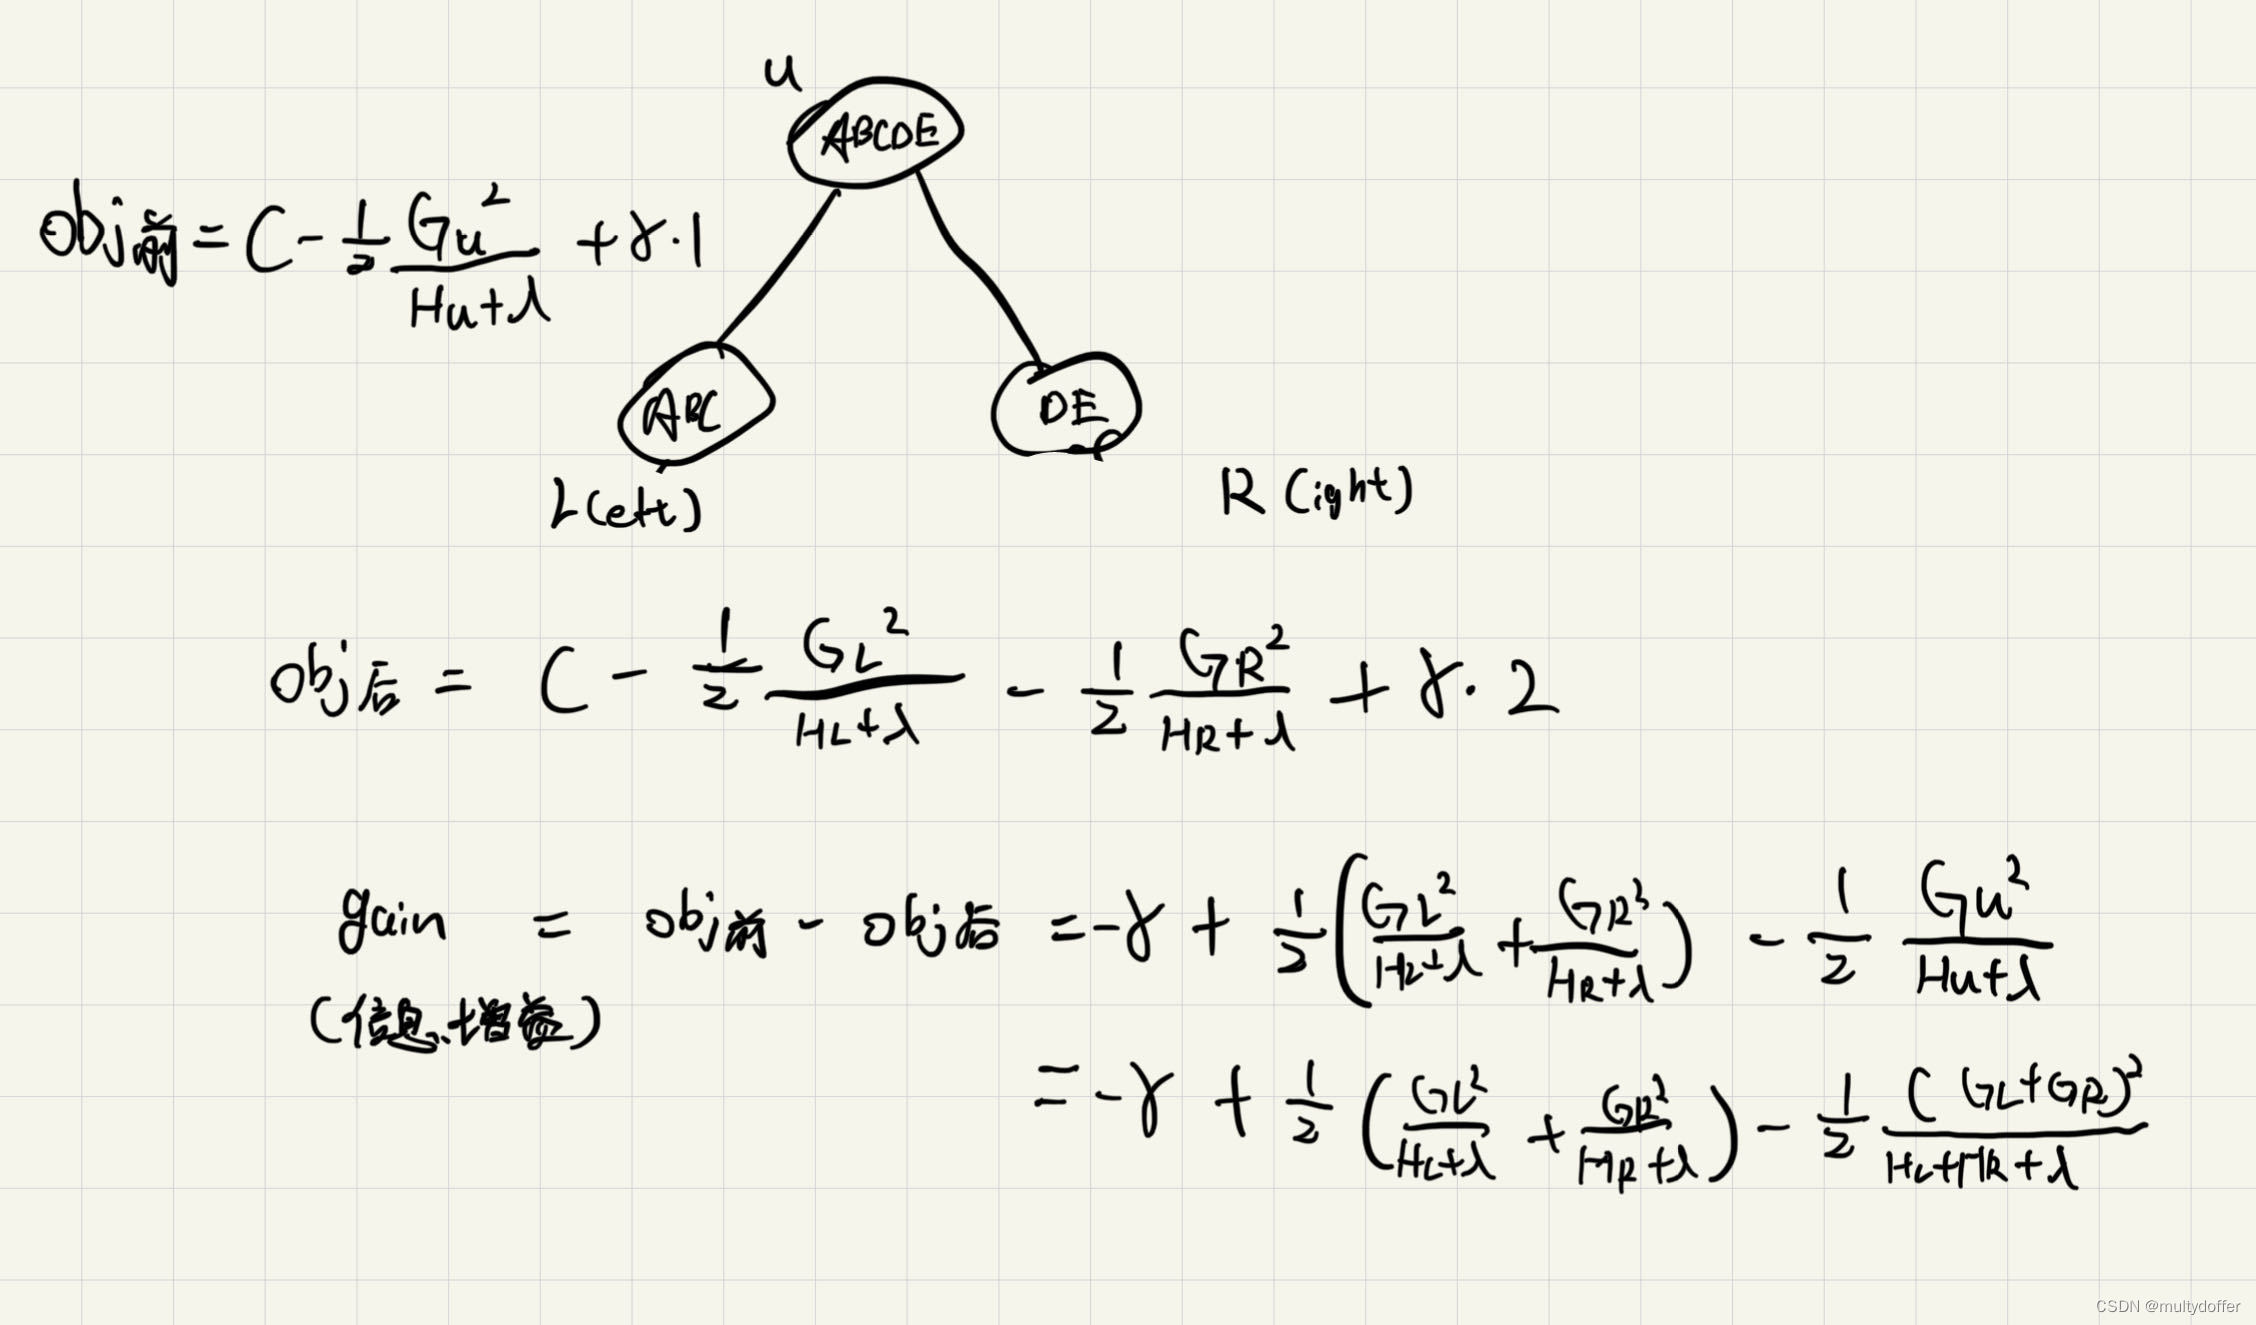 u
ABCDE
obj前 = C - 1/2 Gu²/(Hu+λ) + γ·1
ABC
DE
L(eft)
R(ight)
obj后 = C - 1/2 GL²/(HL+λ) - 1/2 GR²/(HR+λ) + γ·2
gain = obj前 - obj后 = -γ + 1/2 (GL²/(HL+λ) + GR²/(HR+λ)) - 1/2 Gu²/(Hu+λ)
(信息增益)
= -γ + 1/2 (GL²/(HL+λ) + GR²/(HR+λ)) - 1/2 (GL+GR)²/(HL+HR+λ)
CSDN @multydoffer